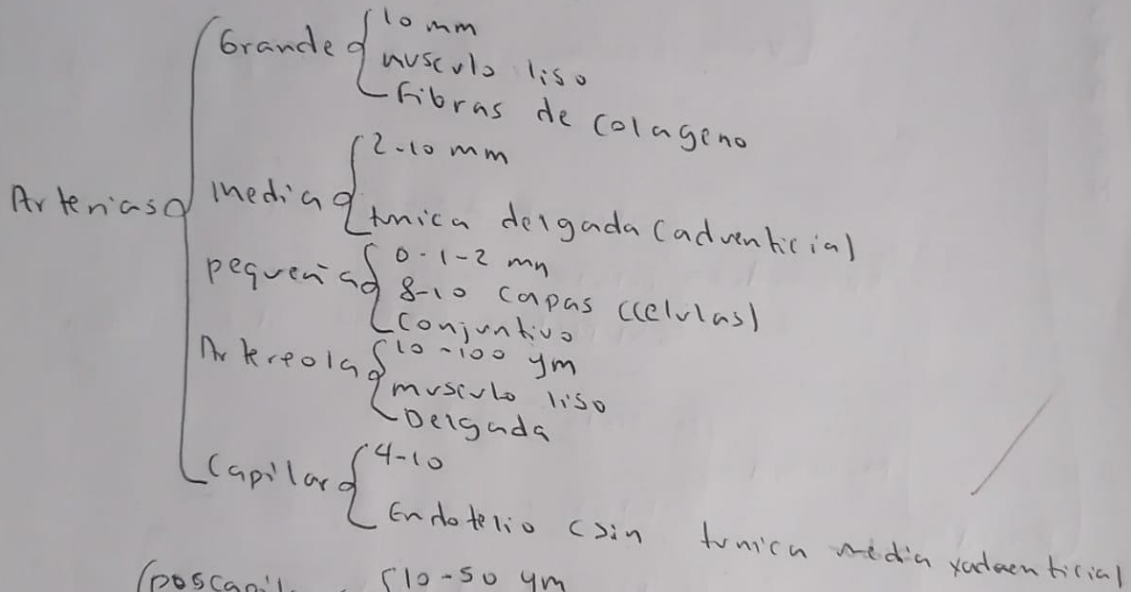 Grande 10 mm
musculo liso
Fibras de colageno
2-10 mm
Arterias media
tunica delgada (adventicial)
pequeña 0-1-2 mn
8-10 capas (celulas)
Conjuntivo
Artereola 10-100 ym
musculo liso
Delgada
Capilar 4-10
Endotelio (sin tunica media yadventicial
10-50 ym